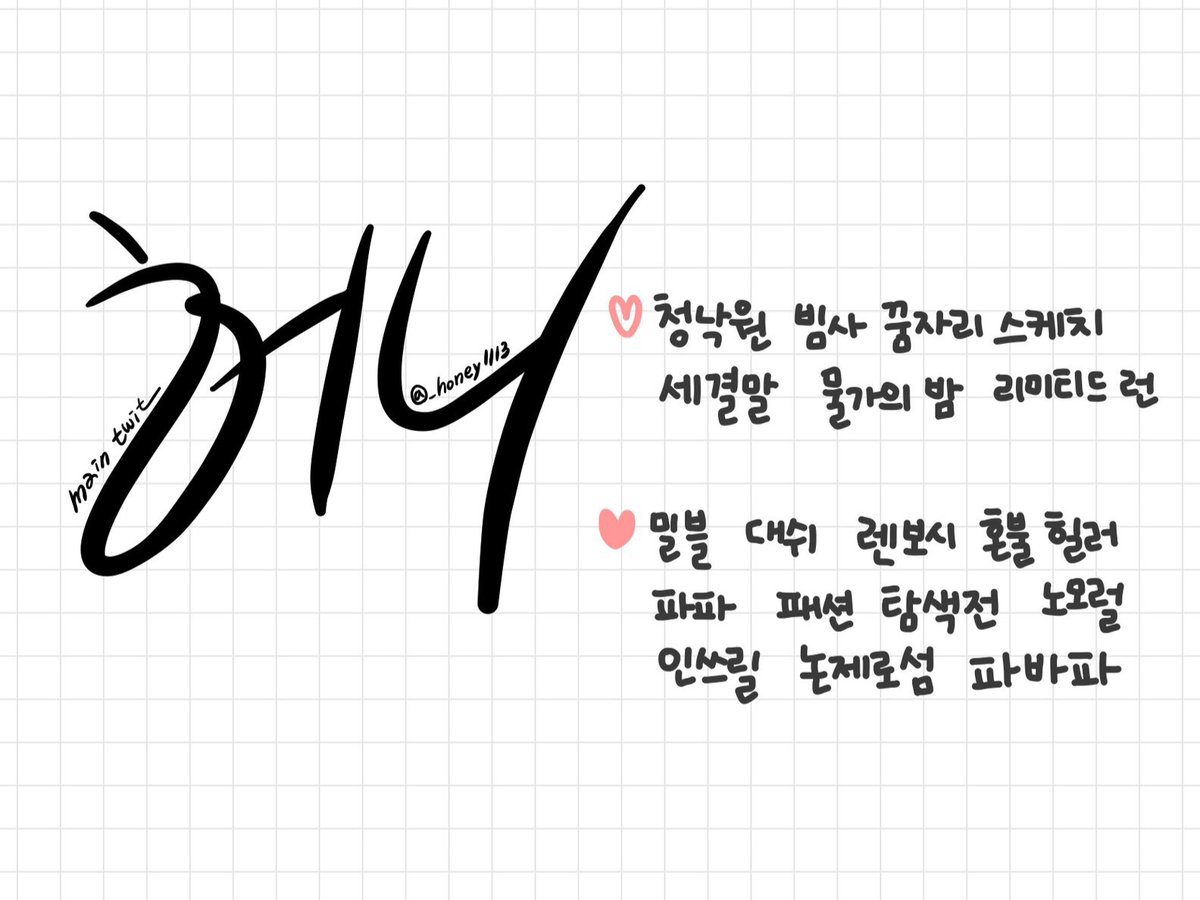 허니
main twit
@_honey1113
청낙원 빔사 꿈자리 스케치
세결말 물가의 밤 리미티드 런
밀블 대쉬 렌보시 혼불 힐러
파파 패션 탐색전 노모럴
인쓰릴 논제로섬 파바파